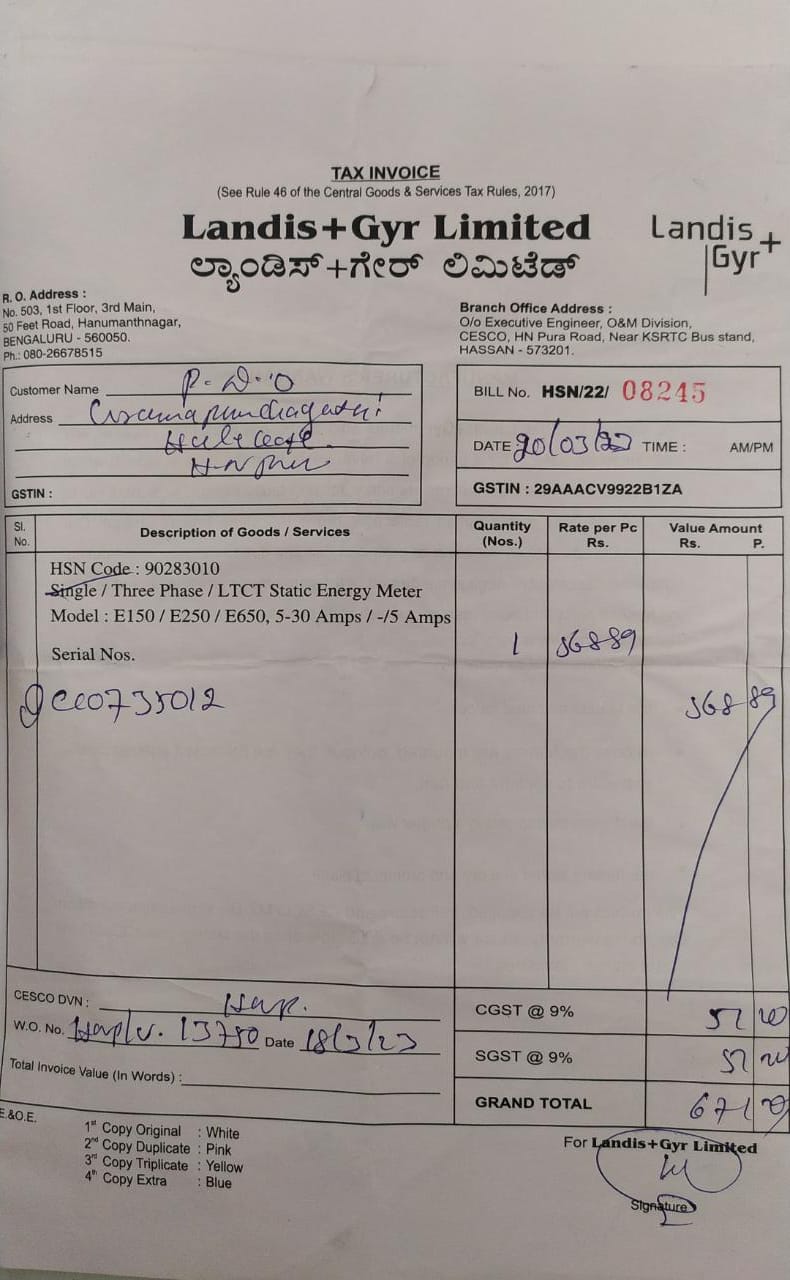 TAX INVOICE
(See Rule 46 of the Central Goods & Services Tax Rules, 2017)
Landis+Gyr Limited
ಲ್ಯಾಂಡಿಸ್+ಗೇರ್ ಲಿಮಿಟೆಡ್
Landis+
Gyr
R. O. Address :
No. 503, 1st Floor, 3rd Main,
50 Feet Road, Hanumanthnagar,
BENGALURU - 560050.
Ph.: 080-26678515
Branch Office Address :
O/o Executive Engineer, O&M Division,
CESCO, HN Pura Road, Near KSRTC Bus stand,
HASSAN - 573201.
Customer Name P-D-O
Address
H-N Pur
GSTIN :
BILL No. HSN/22/ 08245
DATE 20/03/23 TIME : AM/PM
GSTIN : 29AAACV9922B1ZA
Sl. No. Description of Goods / Services Quantity (Nos.) Rate per Pc Rs. Value Amount Rs. P.
HSN Code : 90283010
Single / Three Phase / LTCT Static Energy Meter
Model : E150 / E250 / E650, 5-30 Amps / -/5 Amps
Serial Nos. 1 568-89
0735012 568 89
CESCO DVN :
W.O. No. 13750 Date 18/3/23
Total Invoice Value (In Words) :
CGST @ 9% 51 20
SGST @ 9% 51 20
GRAND TOTAL 671
E.&O.E.
1st Copy Original : White
2nd Copy Duplicate : Pink
3rd Copy Triplicate : Yellow
4th Copy Extra : Blue
For Landis+Gyr Limited
Signature